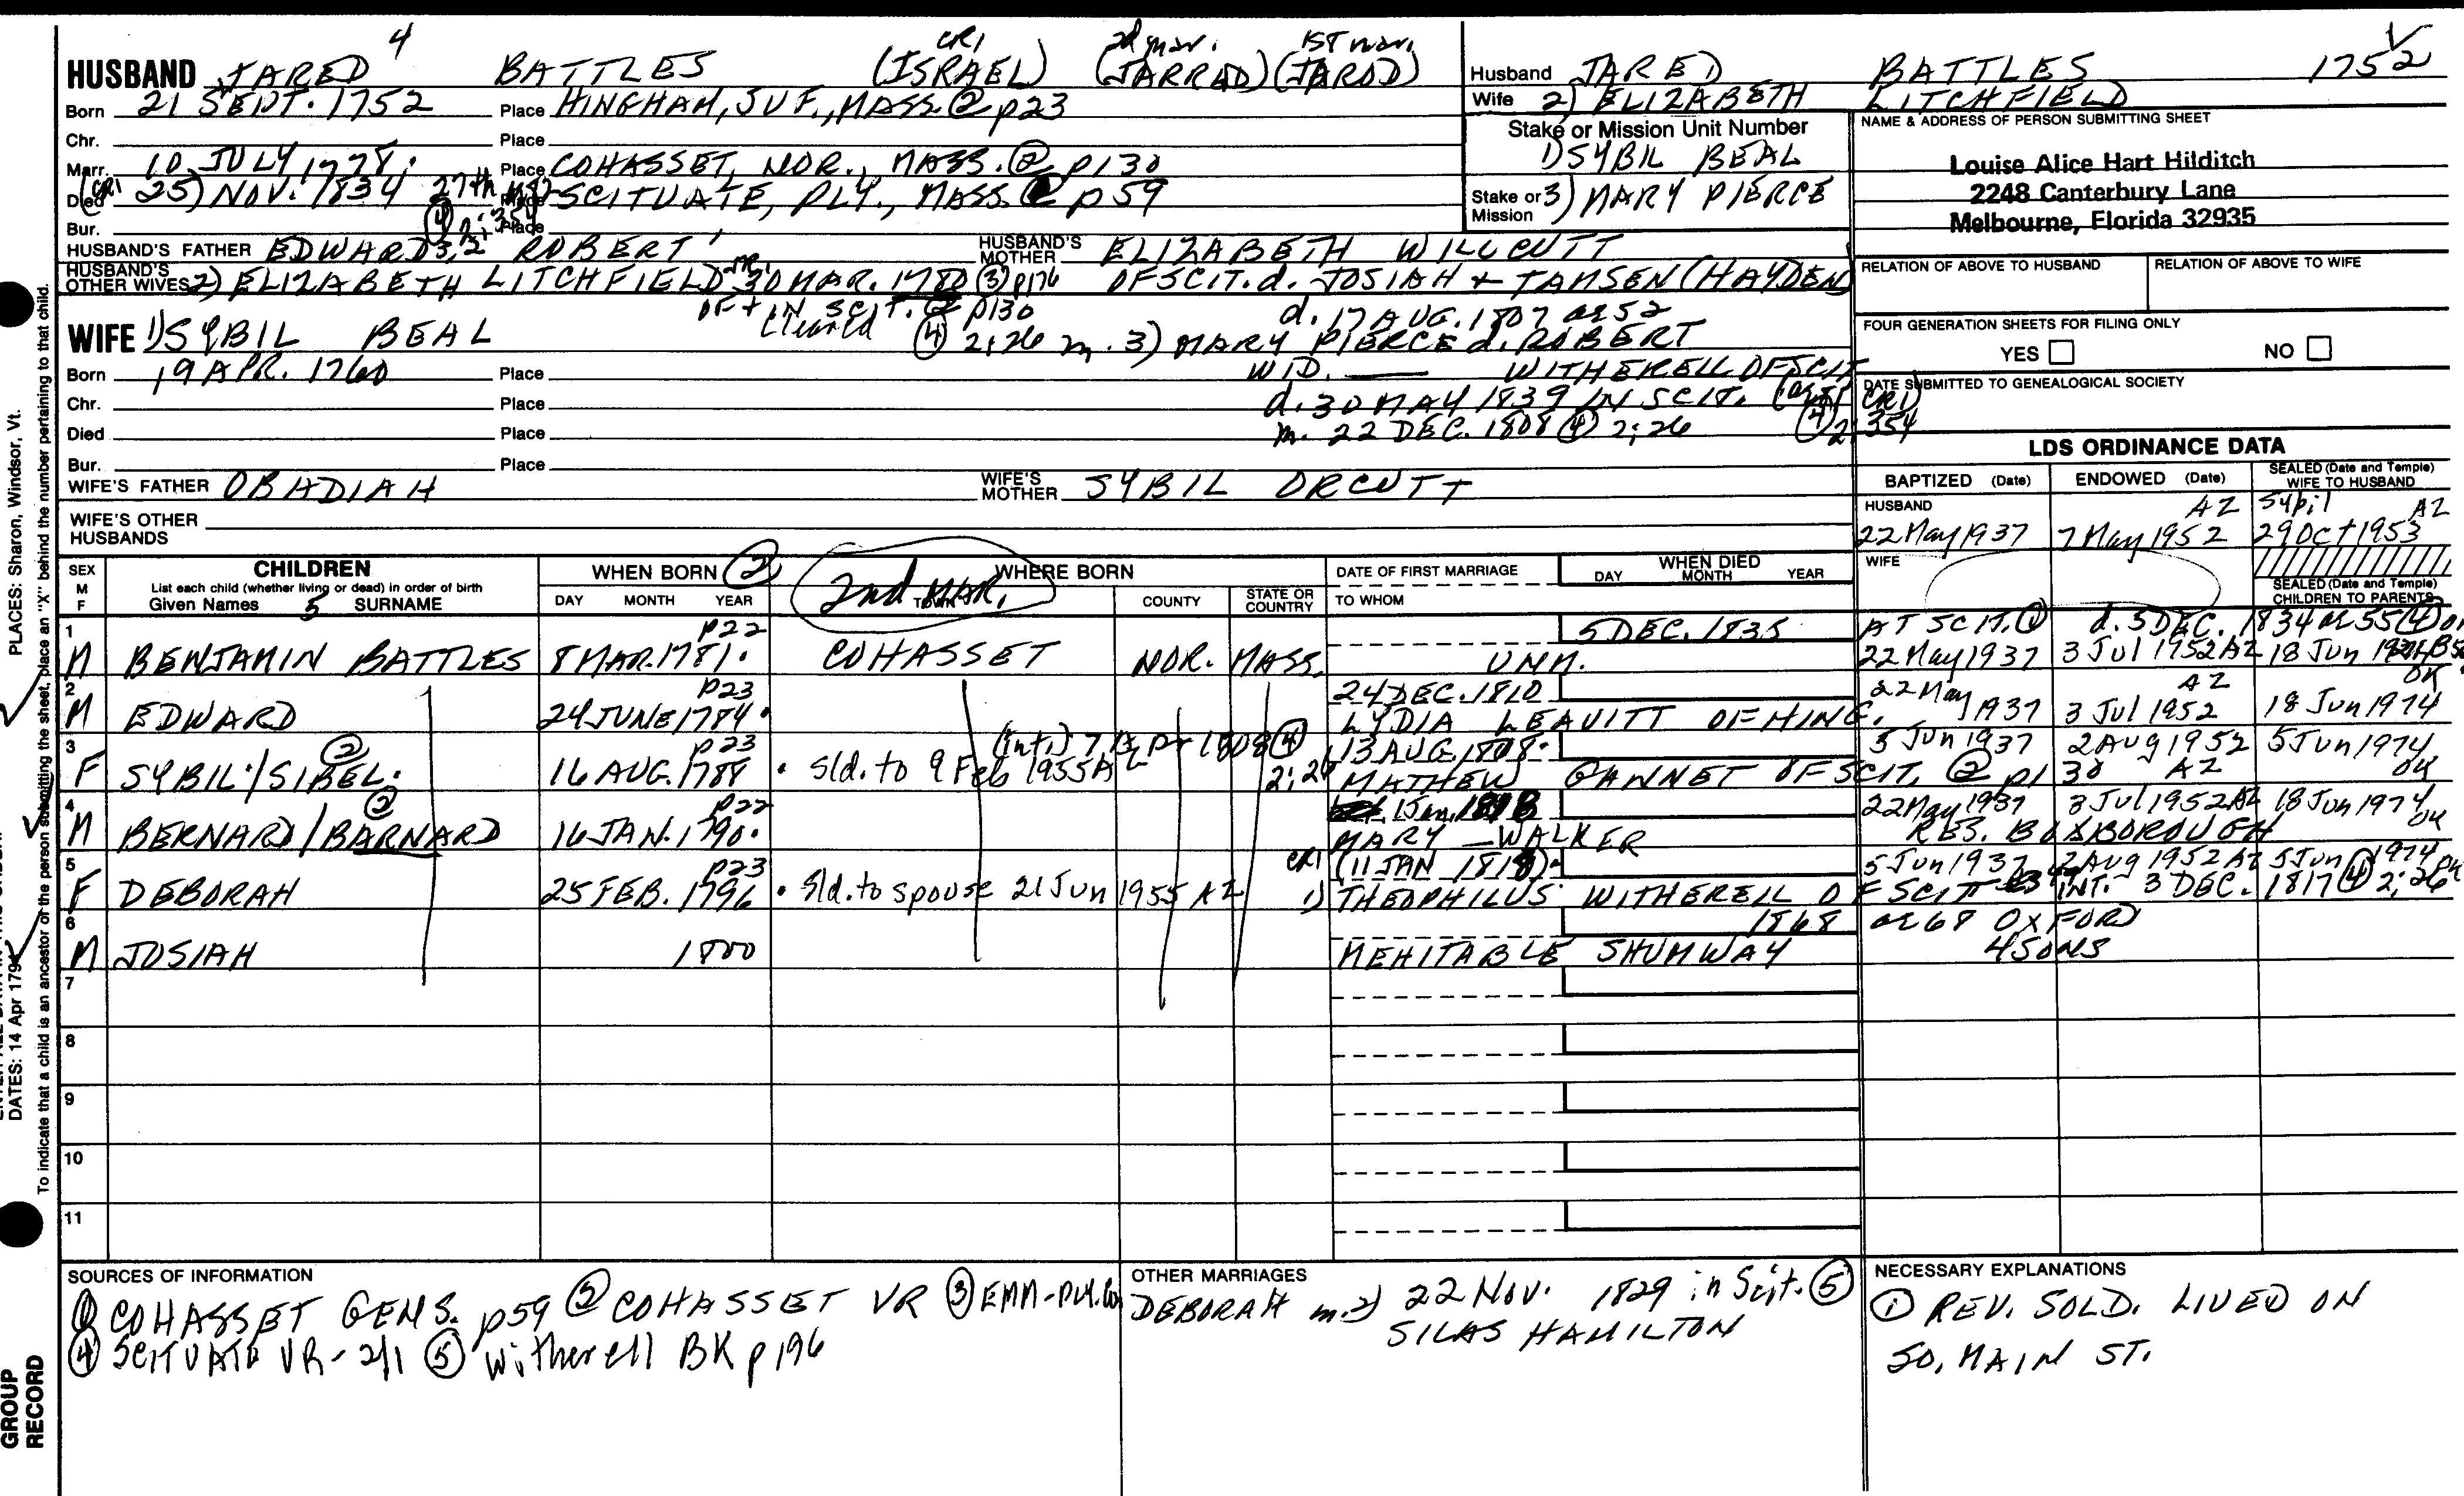 4 CR1 2d mar. 1ST mar.
HUSBAND JARED BATTLES (ISRAEL) (JARRAD) (JAROD)
Born 21 SEPT. 1752 Place HINGHAM, SUF., MASS. ② p23
Chr. Place
Marr. 10 JULY 1778. Place COHASSET, NOR., MASS. ② p130
Died (CR1 25) NOV. 1834 27th Place SCITUATE, PLY., MASS. p59
④ 2:354
Bur. Place
HUSBAND'S FATHER EDWARD3,2 ROBERT1 HUSBAND'S MOTHER ELIZABETH WILLCUTT
HUSBAND'S OTHER WIVES 2) ELIZABETH LITCHFIELD 30 MAR. 1780 ③ p176 OF SCIT. d. JOSIAH + TAMSEN (HAYDEN)
OF + IN SCIT. ② p130 d. 17 AUG. 1807 ae 52
cleared
WIFE 1) SYBIL BEAL ④ 2:26 m. 3) MARY PIERCE d. ROBERT
Born 19 APR. 1760 Place WID. — WITHERELL OF SCIT
Chr. Place d. 30 MAY 1839 IN SCIT. CR1)
Died Place m. 22 DEC. 1808 ④ 2:26 ④ 2:354
Bur. Place
WIFE'S FATHER OBADIAH WIFE'S MOTHER SYBIL ORCUTT
WIFE'S OTHER HUSBANDS
Husband JARED BATTLES 1752
Wife 2) ELIZABETH LITCHFIELD
Stake or Mission Unit Number
1) SYBIL BEAL
Stake or Mission 3) MARY PIERCE
NAME & ADDRESS OF PERSON SUBMITTING SHEET
Louise Alice Hart Hilditch
2248 Canterbury Lane
Melbourne, Florida 32935
RELATION OF ABOVE TO HUSBAND RELATION OF ABOVE TO WIFE
FOUR GENERATION SHEETS FOR FILING ONLY
YES NO
DATE SUBMITTED TO GENEALOGICAL SOCIETY
LDS ORDINANCE DATA
BAPTIZED (Date) ENDOWED (Date) SEALED (Date and Temple) WIFE TO HUSBAND
HUSBAND AZ Sybil AZ
22 May 1937 7 May 1952 29 Oct 1953
WIFE
SEALED (Date and Temple) CHILDREN TO PARENTS
SEX M F
CHILDREN
List each child (whether living or dead) in order of birth
Given Names 5 SURNAME
WHEN BORN ②
DAY MONTH YEAR
2nd MAR. WHERE BORN
TOWN COUNTY STATE OR COUNTRY
DATE OF FIRST MARRIAGE
TO WHOM
WHEN DIED
DAY MONTH YEAR
1 p22 5 DEC. 1835 AT SCIT. ① d. 5 DEC. 1834 ae 55 ④
M BENJAMIN BATTLES 8 MAR. 1781. COHASSET NOR. MASS. UNM. 22 May 1937 3 Jul 1952 AZ 18 Jun
2 p23 24 DEC. 1810 22 May AZ OK
M EDWARD 24 JUNE 1784. LYDIA LEAVITT OF HING. 1937 3 Jul 1952 18 Jun 1974
3 ② p23 (int.) 7 Apr 1808 ④ 13 AUG. 1808. 5 Jun 1937 2 AUG 1952 5 Jun 1974
F SYBIL./SIBEL. 16 AUG. 1788. Sld. to 9 Feb 1955 AZ 2:26 MATHEW GANNET OF SCIT. ② p130 AZ OK
4 ② p22 1 Jan. 22 May 1937 3 Jul 1952 AZ 18 Jun 1974
M BERNARD/BARNARD 16 JAN. 1790. MARY — WALKER RES. BOXBOROUGH OK
5 p23 CR1 (11 JAN 1818). 5 Jun 1937 2 AUG 1952 AZ 5 Jun 1974
F DEBORAH 25 FEB. 1796. Sld. to spouse 21 Jun 1955 AZ 1) THEOPHILUS WITHERELL OF SCIT INT. 3 DEC. 1817 ④ 2:26 OK
6 1868 ae 68 OXFORD
M JOSIAH 1800 MEHITABLE SHUMWAY 4 SONS
7
8
9
10
11
SOURCES OF INFORMATION
① COHASSET GENS. p59 ② COHASSET VR ③ EMM-PLY. Co.
④ SCITUATE VR-2/1 ⑤ Witherell BK p196
OTHER MARRIAGES
DEBORAH m. 2) 22 Nov. 1829 in Scit. ⑤
SILAS HAMILTON
NECESSARY EXPLANATIONS
① REV. SOLD. LIVED ON
SO. MAIN ST.
PLACES: Sharon, Windsor, Vt.
DATES: 14 Apr 179
To indicate that a child is an ancestor of the person submitting the sheet, place an "X" behind the number pertaining to that child.
GROUP
RECORD